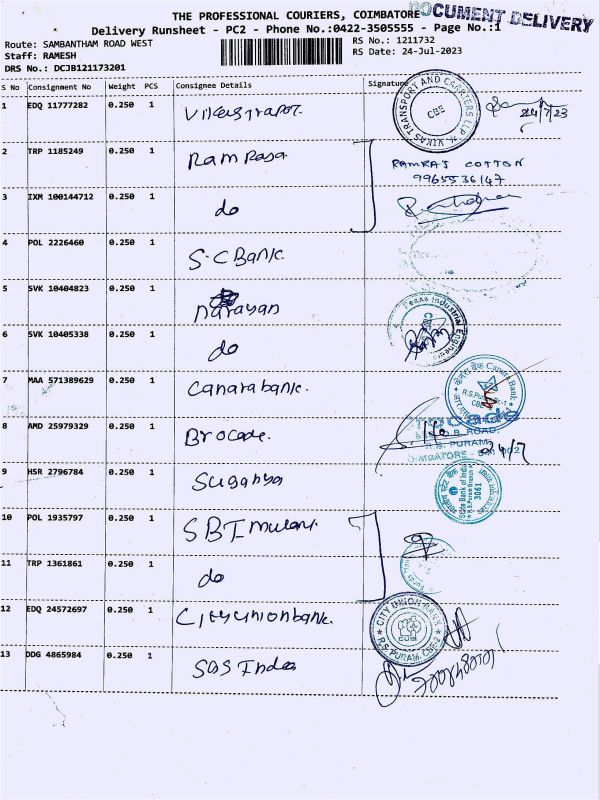 THE PROFESSIONAL COURIERS, COIMBATORE
DOCUMENT DELIVERY
Delivery Runsheet - PC2 - Phone No.:0422-3505555 - Page No.:1
Route: SAMBANTHAM ROAD WEST
RS No.: 1211732
Staff: RAMESH
RS Date: 24-Jul-2023
DRS No.: DCJB121173201
S No Consignment No Weight PCS Consignee Details Signature
1 EDQ 11777282 0.250 1
VIKAS TRANSPORT AND CARRIERS LLP
CBE
24/7/23
2 TRP 1185249 0.250 1
RAMRAJ COTTON
9965536147
3 IXM 100144712 0.250 1 do
4 POL 2226460 0.250 1 S.C Bank.
5 SVK 10404823 0.250 1 narayan
Texas Industrial Engineers
6 SVK 10405338 0.250 1 do
7 MAA 571389629 0.250 1 Canara bank.
Canara Bank
8 AMD 25979329 0.250 1 Brocade.
B. ROAD
R.S. PURAM
24/7
9 HSR 2796784 0.250 1 Suganya
State Bank of India
3061
10 POL 1935797 0.250 1 SBI
11 TRP 1361861 0.250 1 do
12 EDQ 24572697 0.250 1 City union bank.
CITY UNION BANK
CUB
R.S. PURAM, CBE-2
13 DDG 4865984 0.250 1